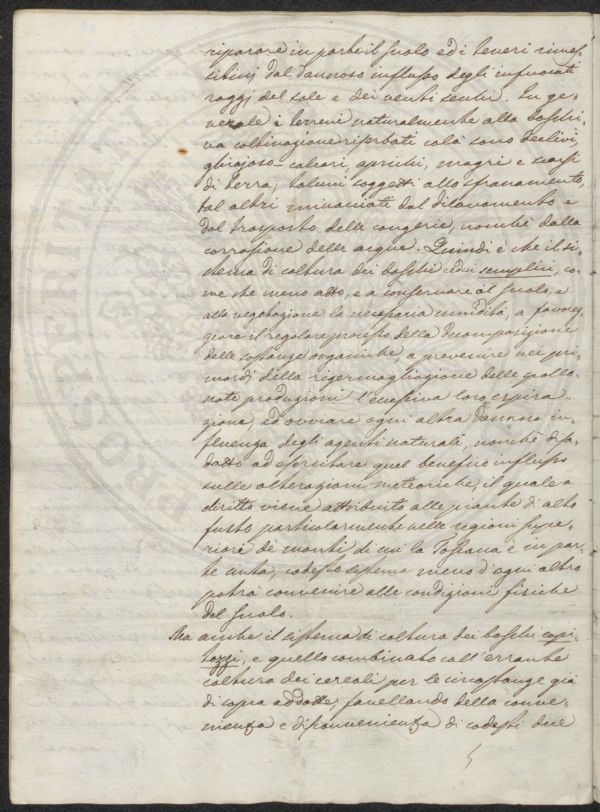 riparare in parte il suolo ed i teneri rimes-
sitivj dal dannoso influsso degli infuocati
raggj del sole e dei venti sentii. In ge-
nerale i terreni naturalmente alla boschi-
va coltivazione riserbati colà sono declivi,
ghiajoso-calcari, aprichi, magri e scarsi
di terra, taluni soggetti allo sfranamento,
tal altri minacciati dal dilavamento e
dal trasporto delle congerie, nonchè dalla
corrosione delle acque. Quindi è che il si-
stema di coltura dei boschi cedui semplici, co-
me che meno atto, e a conservare al suolo, e
alla vegetazione la necessaria umidità, a favoreg-
giare il regolare processo della decomposizione
delle sostanze organiche, a prevenire nei pri-
mordj della rigermogliazione delle pollo-
nate produzioni l'eccessiva loro espira-
zione, ed ovviare ogni altra dannosa in-
fluenza degli agenti naturali, nonchè disa-
datto ad esercitare quel benefico influsso
sulle alterazioni meteoriche, il quale a
diritto viene attribuito alle piante di alto
fusto particolarmente nelle regioni supe-
riori de' monti di cui la Toscana è in par-
te cinta, codesto sistema meno d'ogni altro
potrà convenire alle condizioni fisiche
del suolo.
Ma anche il sistema di coltura dei boschi capi-
tozzi, e quello combinato coll'errante
coltura dei cereali per le circostanze già
di sopra addotte, favellando della conve-
nienza e disconvenienza di codesti due